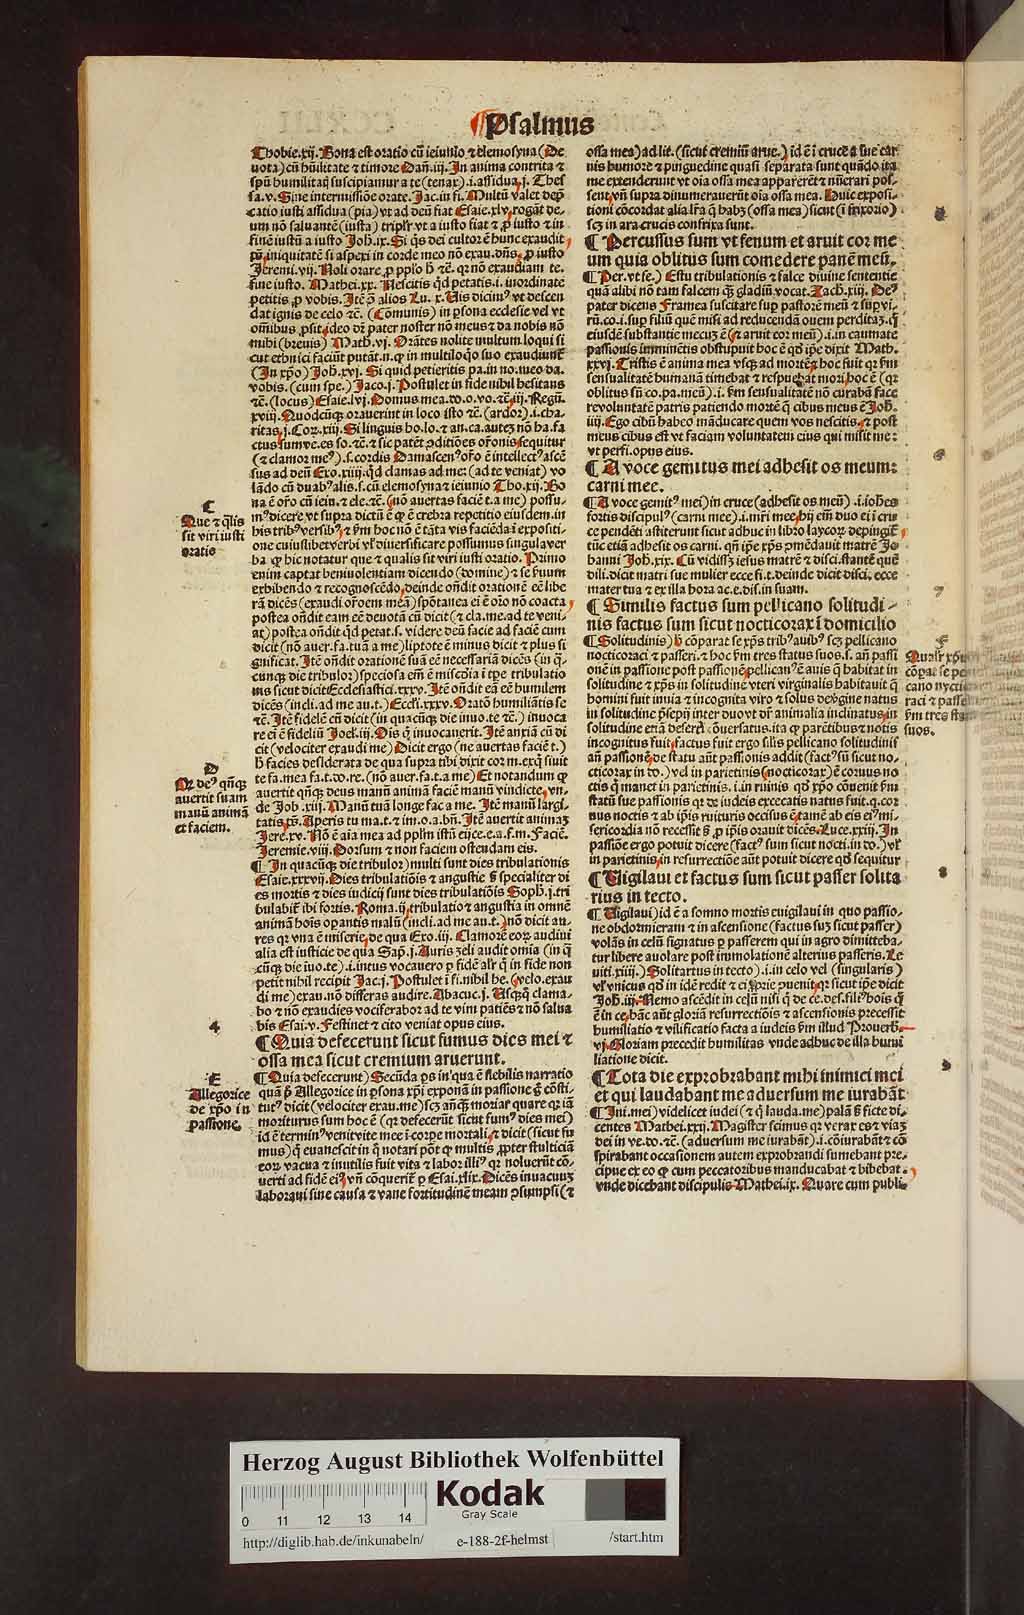 ¶ Psalmus
Thobie.xij. Bona est oratio cū ieiunio ⁊ elemosyna (De
uota) cū hūilitate ⁊ timore Dañ.iij. In anima contrita ⁊
spū humilitatꝭ suscipiamur a te (tenax).i.assidua.j. Thes
sa.v. Sine intermissiōe orate. Jac.in fi. Multū valet dep̄
catio iusti assidua (pia) vt ad deū fiat Esaie.xlv. rogāt de
um nō saluantē (iusta) triplr̄ vt a iusto fiat ⁊ ꝓ iusto ⁊ in
finē iustū a iusto Joh.ix. Si q̄s dei cultor ē hunc exaudit
p̄s. iniquitatē si aspexi in corde meo nō exau. dn̄s. ꝓ iusto
Jeremi.vij. Noli orare ꝓ pplo h̄ ⁊c. qr nō exaudiam te.
fine iusto. Mathei.xx. Nescitis qd petatis.i. inordinate
petitis ꝓ vobis. Itē ꝓ alios Lu.x. Vis dicimꝰ vt descen
dat ignis de celo ⁊c. (Cōmunis) in ꝑsona ecclesie vel vt
om̄ibus ꝓsit. ideo dr̄ pater noster nō meus ⁊ da nobis nō
mihi (breuis) Math.vj. Orātes nolite multum loqui si
cut ethnici faciūt putāt.n. ꝙ in multiloq̄o suo exaudiunt̄
(In xp̄o) Joh.xvj. Si quid petieritis pa.in no.meo da.
vobis. (cum spe.) Jaco.j. Postulet in fide nihil hesitans
⁊c. (locus) Esaie.lvj. Domus mea.do.o.vo.⁊c. iij. Regū.
xviij. Quodcūqꝫ orauerint in loco isto ⁊c. (ardor).i.cha
ritas.j.Cor.xiij. Si linguis ho.lo.⁊ an.ca.autez nō ha.fa
ctus sum ve.es so.⁊c. ⁊ sic patēt ꝯditiōes or̄onis sequitur
(⁊ clamor meꝰ).s.cordis Damascenꝰ or̄o ē intellectꝰ ascē
sus ad deū Exo.xiiij. qd clamas ad me: (ad te veniat) vo
lādo cū duabꝰ alis.s.cū elemosyna ⁊ ieiunio Tho.xij. Bo
na ē or̄o cū ieiu.⁊ ele.⁊c. (nō auertas faciē t.a me) possu
mꝰ dicere vt supra dictū ē ꝙ ē crebra repetitio eiusdem.in
his tribꝰ versibꝰ ⁊ ẜm hoc nō ē tāta vis faciēda i expositi
one cuiuslibet verbi vl̄ diuersificare possumus singula ver
ba ꝙ hic notatur que ⁊ qualis sit viri iusti oratio. Primo
enim captat beniuolentiam dicendo (domine) ⁊ se ẜuum
exhibendo ⁊ recognoscēdo. deinde oñdit orationē eē libe
rā dicēs (exaudi or̄oem meā) spōtanea ei ē or̄o nō coacta
postea oñdit eam eē deuotā cū dicit (⁊ cla.me.ad te veni
at) postea oñdit qd petat.s. videre deū facie ad faciē cum
dicit (nō auer.fa.tuā a me) liptote ē minus dicit ⁊ plus si
gnificat. Itē oñdit orationē suā eē necessariā dicēs (in q̄
cunqꝫ die tribulor) speciosa em̄ ē miscd̄ia i tpe tribulatio
nis sicut dicit Ecclesiastici.xxxv. Itē oñdit eā eē humilem
dicēs (incli. ad me au.t.) Eccli.xxxv. Oratō humiliātis se
⁊c. Itē fidelē cū dicit (in quacūqꝫ die inuo.te ⁊c.) inuoca
re ei ē fideliū Joel.iij. Oīs q̄ inuocauerit. Itē anxiā cū di
cit (velociter exaudi me) Dicit ergo (ne auertas faciē t.)
h̄ facies desiderata de qua supra tibi dixit cor m.exqꝫ siuit
te fa.mea fa.t.do.re. (nō auer.fa.t.a me) Et notandum ꝙ
auertit qn̄qꝫ deus manū animā faciē manū vindicte. vn̄.
de Job.xiij. Manū tuā longe fac a me. Itē manū largi
tatis. p̄s. Aperis tu ma.t.⁊ im.o.a.bn̄. Itē auertit animaz
Jere.xv. Nō ē aīa mea ad pplm istū eijce.e.a.f.m. Faciē.
Jeremie.viij. Dorsum ⁊ non faciem ostendam eis.
¶ In quacūqꝫ die tribulor) multi sunt dies tribulationis
Esaie.xxxvij. Dies tribulatiōis ⁊ angustie ẜ specialiter di
es mortis ⁊ dies iudicij sunt dies tribulatiōis Soph.j.tri
bulabit̄ ibi fortis. Roma.ij. tribulatio ⁊ angustia in omnē
animā hoīs opantis malū (incli. ad me au.t.) nō dicit au
res qr vna ē miserie. de qua Exo.iij. Clamorē eoꝝ audiui
alia est iusticie de qua Sap.j. Auris zeli audit omīa (in q̄
cūqꝫ die iuo.te).i.intus vocauero ꝑ fidē alr̄ q̄ in fide non
petit nihil recipit Jac.j. Postulet i fi.nihil he. (velo.exau
di me) exau.nō differas audire. Abacuc.j. Vsqꝫqꝫ clama
bo ⁊ nō exaudies vociferabor ad te vim patiēs ⁊ nō salua
bis Esai.v. Festinet ⁊ cito veniat opus eius.
¶ Quia defecerunt sicut fumus dies mei ⁊
ossa mea sicut cremium aruerunt.
¶ Quia defecerunt) Secūda ps in qua ē flebilis narratio
quā p̄ Allegorice in ꝑsona xp̄i exponā in passione ẜ cōsti
tutꝰ dicit (velociter exau.me) scꝫ anteqꝫ moriar quare qr iā
moriturus sum hoc ē (qr defecerūt sicut fumꝰ dies mei)
id ē terminꝰ venit vite mee i corpe mortali. ⁊ dicit (sicut fu
mus) q̄ euanescit in q̄ notari pōt ꝙ multis ꝓpter stulticiā
eoꝝ vacua ⁊ inutilis fuit vita ⁊ labor illiꝰ qr noluerūt cō
uerti ad fidē eiꝰ. vn̄ cōquerit̄ ꝑ Esai.xlix. Dicēs in vacuuz
laboraui sine causa ⁊ vane fortitudinē meam ꝯsumpsi (⁊
C
Que ⁊ q̄lis
sit viri iusti
oratio
D
Qr deꝰ qn̄qꝫ
auertit suam
manū animā
et faciem.
4
E
Allegorice
de xp̄o in
passione.
ossa mea) ad lit. (sicut cremiū arue.) id ē i cruce a sue car
nis humore ⁊ pinguedine quasi separata sunt quādo ita
me extenderunt vt oīa ossa mea apparerēt ⁊ nūerari pos
sent. vn̄ supra dinumerauerūt oīa ossa mea. Huic exposi
tioni cōcordat alia lr̄a q̄ habꝫ (ossa mea) sicut (i frixorio)
scꝫ in ara crucis confrixa sunt.
¶ Percussus sum vt fenum et aruit cor me
um quia oblitus sum comedere panē meū.
¶ Per.vt fe.) Estu tribulationis ⁊ falce diuine sententie
quā alibi nō tam falcem qꝫ gladiū vocat. Zach.xiij. Deꝰ
pater dicens Framea suscitare suꝑ pastorē meū ⁊ suꝑ vi
rū.co.i.suꝑ filiū quē misi ad reducendā ouem perditaz. q̄
eiusdē substantie mecuz ē (⁊ aruit cor meū).i.in examate
passionis imminētis obstupuit hoc ē qd ipe dixit Math.
xxvj. Tristis ē anima mea vsqꝫ ad mortē ⁊ hoc fuit qr ẜm
sensualitatē humanā timebat ⁊ respuebat mori. hoc ē (qr
oblitus sū co.pa.meū).i. ẜm sensualitatē nō curabā face
re voluntatē patris patiendo mortē q̄ cibus meus ē Joh.
iiij. Ego cibū habeo māducare quem vos nescitis. ⁊ post
meus cibus est vt faciam voluntatem eius qui misit me:
vt perfi.opus eius.
¶ A voce gemitus mei adhesit os meum:
carni mee.
¶ A voce gemitꝰ mei) in cruce (adhesit os meū).i.ioh̄es
fortis discipulꝰ (carni mee).i.mr̄i mee. hij em̄ duo ei i cru
ce pendēti astiterunt sicut adhuc in libro laycoꝝ depingit̄
tūc etiā adhesit os carni. qn̄ ipe xp̄s ꝯmēdauit matrē Jo
hanni Joh.xix. Cū vidissꝫ iesus matrē ⁊ disci.stantē quē
dili.dicit matri sue mulier ecce fi.t.deinde dicit disci. ecce
mater tua ⁊ ex illa hora ac.e.dis.in suam.
¶ Similis factus sum pellicano solitudi
nis factus sum sicut nocticorax i domicilio
¶ Solitudinis) h̄ cōparat se xp̄s tribꝰ auibꝰ scꝫ pellicano
nocticoraci ⁊ passeri. ⁊ hoc ẜm tres status suos.s. añ passi
onē in passione post passionē. pellicanꝰ ē auis q̄ habitat in
solitudine ⁊ xp̄s in solitudine vteri virginalis habitauit q̄
homini fuit inuia ⁊ incognita viro ⁊ solus de ꝟgine natus
in solitudine p̄sepij inter duo vt dr̄ animalia inclinatus. in
solitudine etiā deferti ꝯuersatus. ita ꝙ parētibus ⁊ notis
incognitus fuit. factus fuit ergo silis pellicano solitudinis
añ passionē. de statu aūt passionis addit (factꝰ sū sicut no
cticorax in do.) vel in parietinis (nocticorax) ē coruus no
ctis q̄ manet in parietinis.i.in ruinis qd xp̄o cōuenit ẜm
statū sue passionis qr de iudeis excecatis natus fuit. q.cor
uus noctis ⁊ ab ip̄is ruituris occisus ē. tamē ab eis eiꝰ mi
sericordia nō recessit ẜ ꝓ ip̄is orauit dicēs. Luce.xxiij. In
passiōe ergo potuit dicere (factꝰ sum sicut nocti.in do.) vl̄
in parietinis. in resurrectiōe aūt potuit dicere qd sequitur
¶ Vigilaui et factus sum sicut passer solita
rius in tecto.
¶ Vigilaui) id ē a somno mortis euigilaui in quo passio
ne obdormieram ⁊ in ascensione (factus suꝫ sicut passer)
volās in celū signatus ꝑ passerem qui in agro dimitteba
tur libere auolare post immolationē alterius passeris. Le
uiti.xiiij.) Solitarius in tecto).i.in celo vel (singularis)
vl̄ vnicus qd in idē redit ⁊ ei ꝓprie ꝯuenit. qr sicut ipe dicit
Joh.iij. Nemo ascēdit in celū nisi q̄ de ce.des.filiꝰ hois q̄
ē in ce. hāc aūt gloriā resurrectiōis ⁊ ascensionis precessit
humiliatio ⁊ vilificatio facta a iudeis ẜm illud Prouerb.
vj. Gloriam precedit humilitas vnde adhuc de illa humi
liatione dicit.
¶ Tota die exprobrabant mihi inimici mei
et qui laudabant me aduersum me iurabāt
¶ Ini.mei) videlicet iudei (⁊ q̄ lauda.me) palā ẜ ficte di
centes Mathei.xxij. Magister scimus qr verax es ⁊ viaz
dei in ve.do.⁊c. (aduersum me iurabāt).i.cōiurabāt ⁊ cō
spirabant occasionem autem exprobrandi sumebant pre
cipue ex eo ꝙ cum peccatoribus manducabat ⁊ bibebat.
vnde dicebant discipulis Mathei.ix. Quare cum publi
6
7
F
cano
suos.
8
9
Herzog August Bibliothek Wolfenbüttel
Kodak
Gray Scale
0 11 12 13 14
http://diglib.hab.de/inkunabeln/ e-188-2f-helmst /start.htm